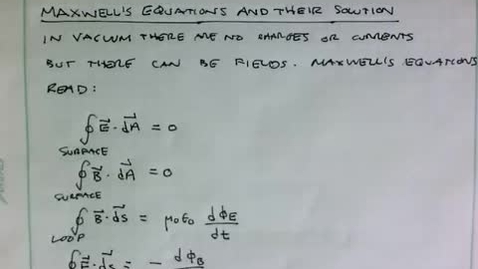 MAXWELL'S EQUATIONS AND THEIR SOLUTION
IN VACUUM THERE ARE NO CHARGES OR CURRENTS
BUT THERE CAN BE FIELDS. MAXWELL'S EQUATIONS
READ:
∮ E⃗ · dA⃗ = 0
SURFACE
∮ B⃗ · dA⃗ = 0
SURFACE
∮ B⃗ · ds⃗ = μ₀ε₀ dϕ_E/dt
LOOP
∮ E⃗ · ds⃗ = − dϕ_B